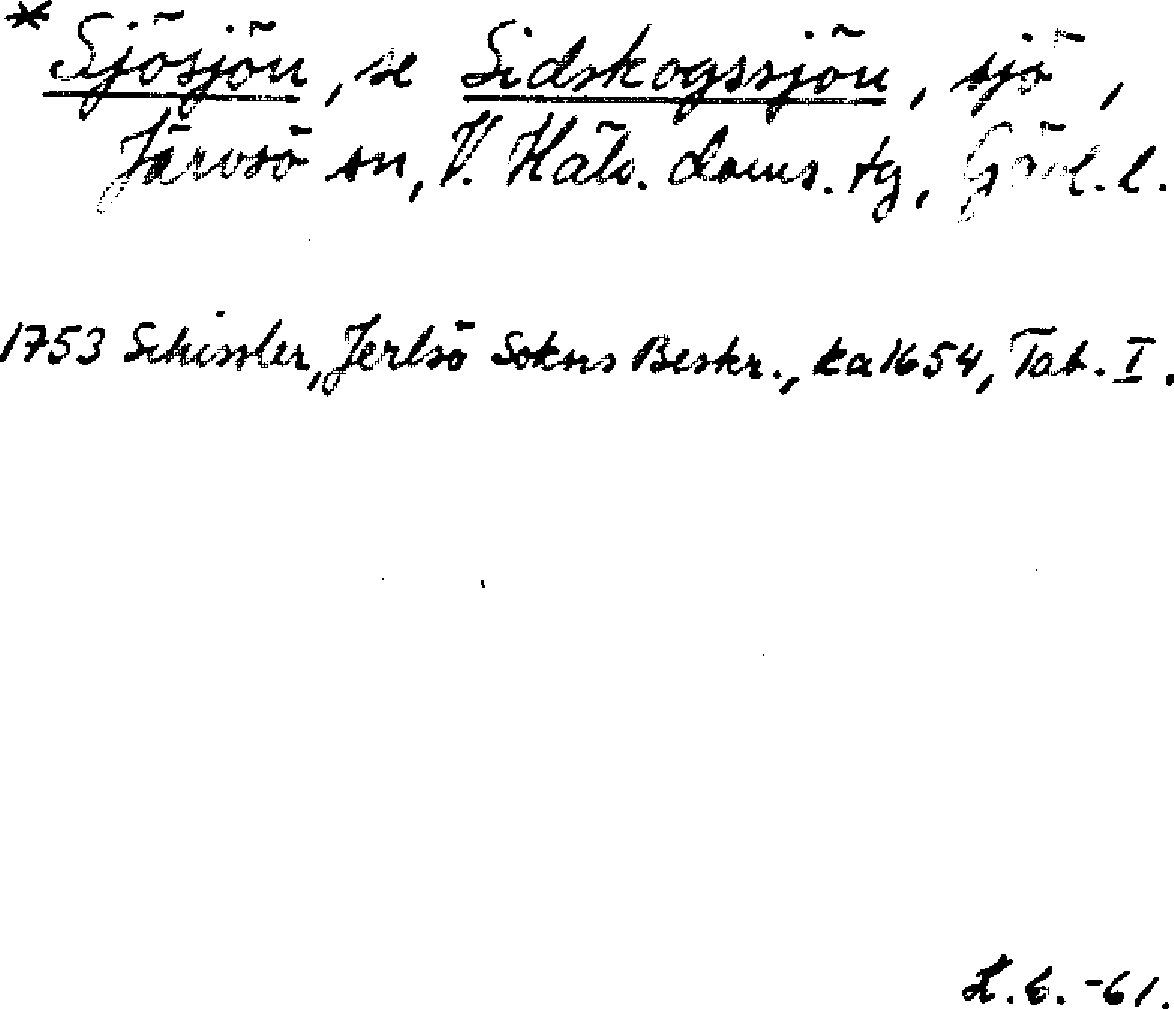 * Sjösjön, se Sidskogssjön, sjö,
Järvsö sn, V. Häls. doms. tg, Gävl. l.
1753 Schissler, Jerlsö Sokns Beskr., ka 1654, Tab. I.
-61.